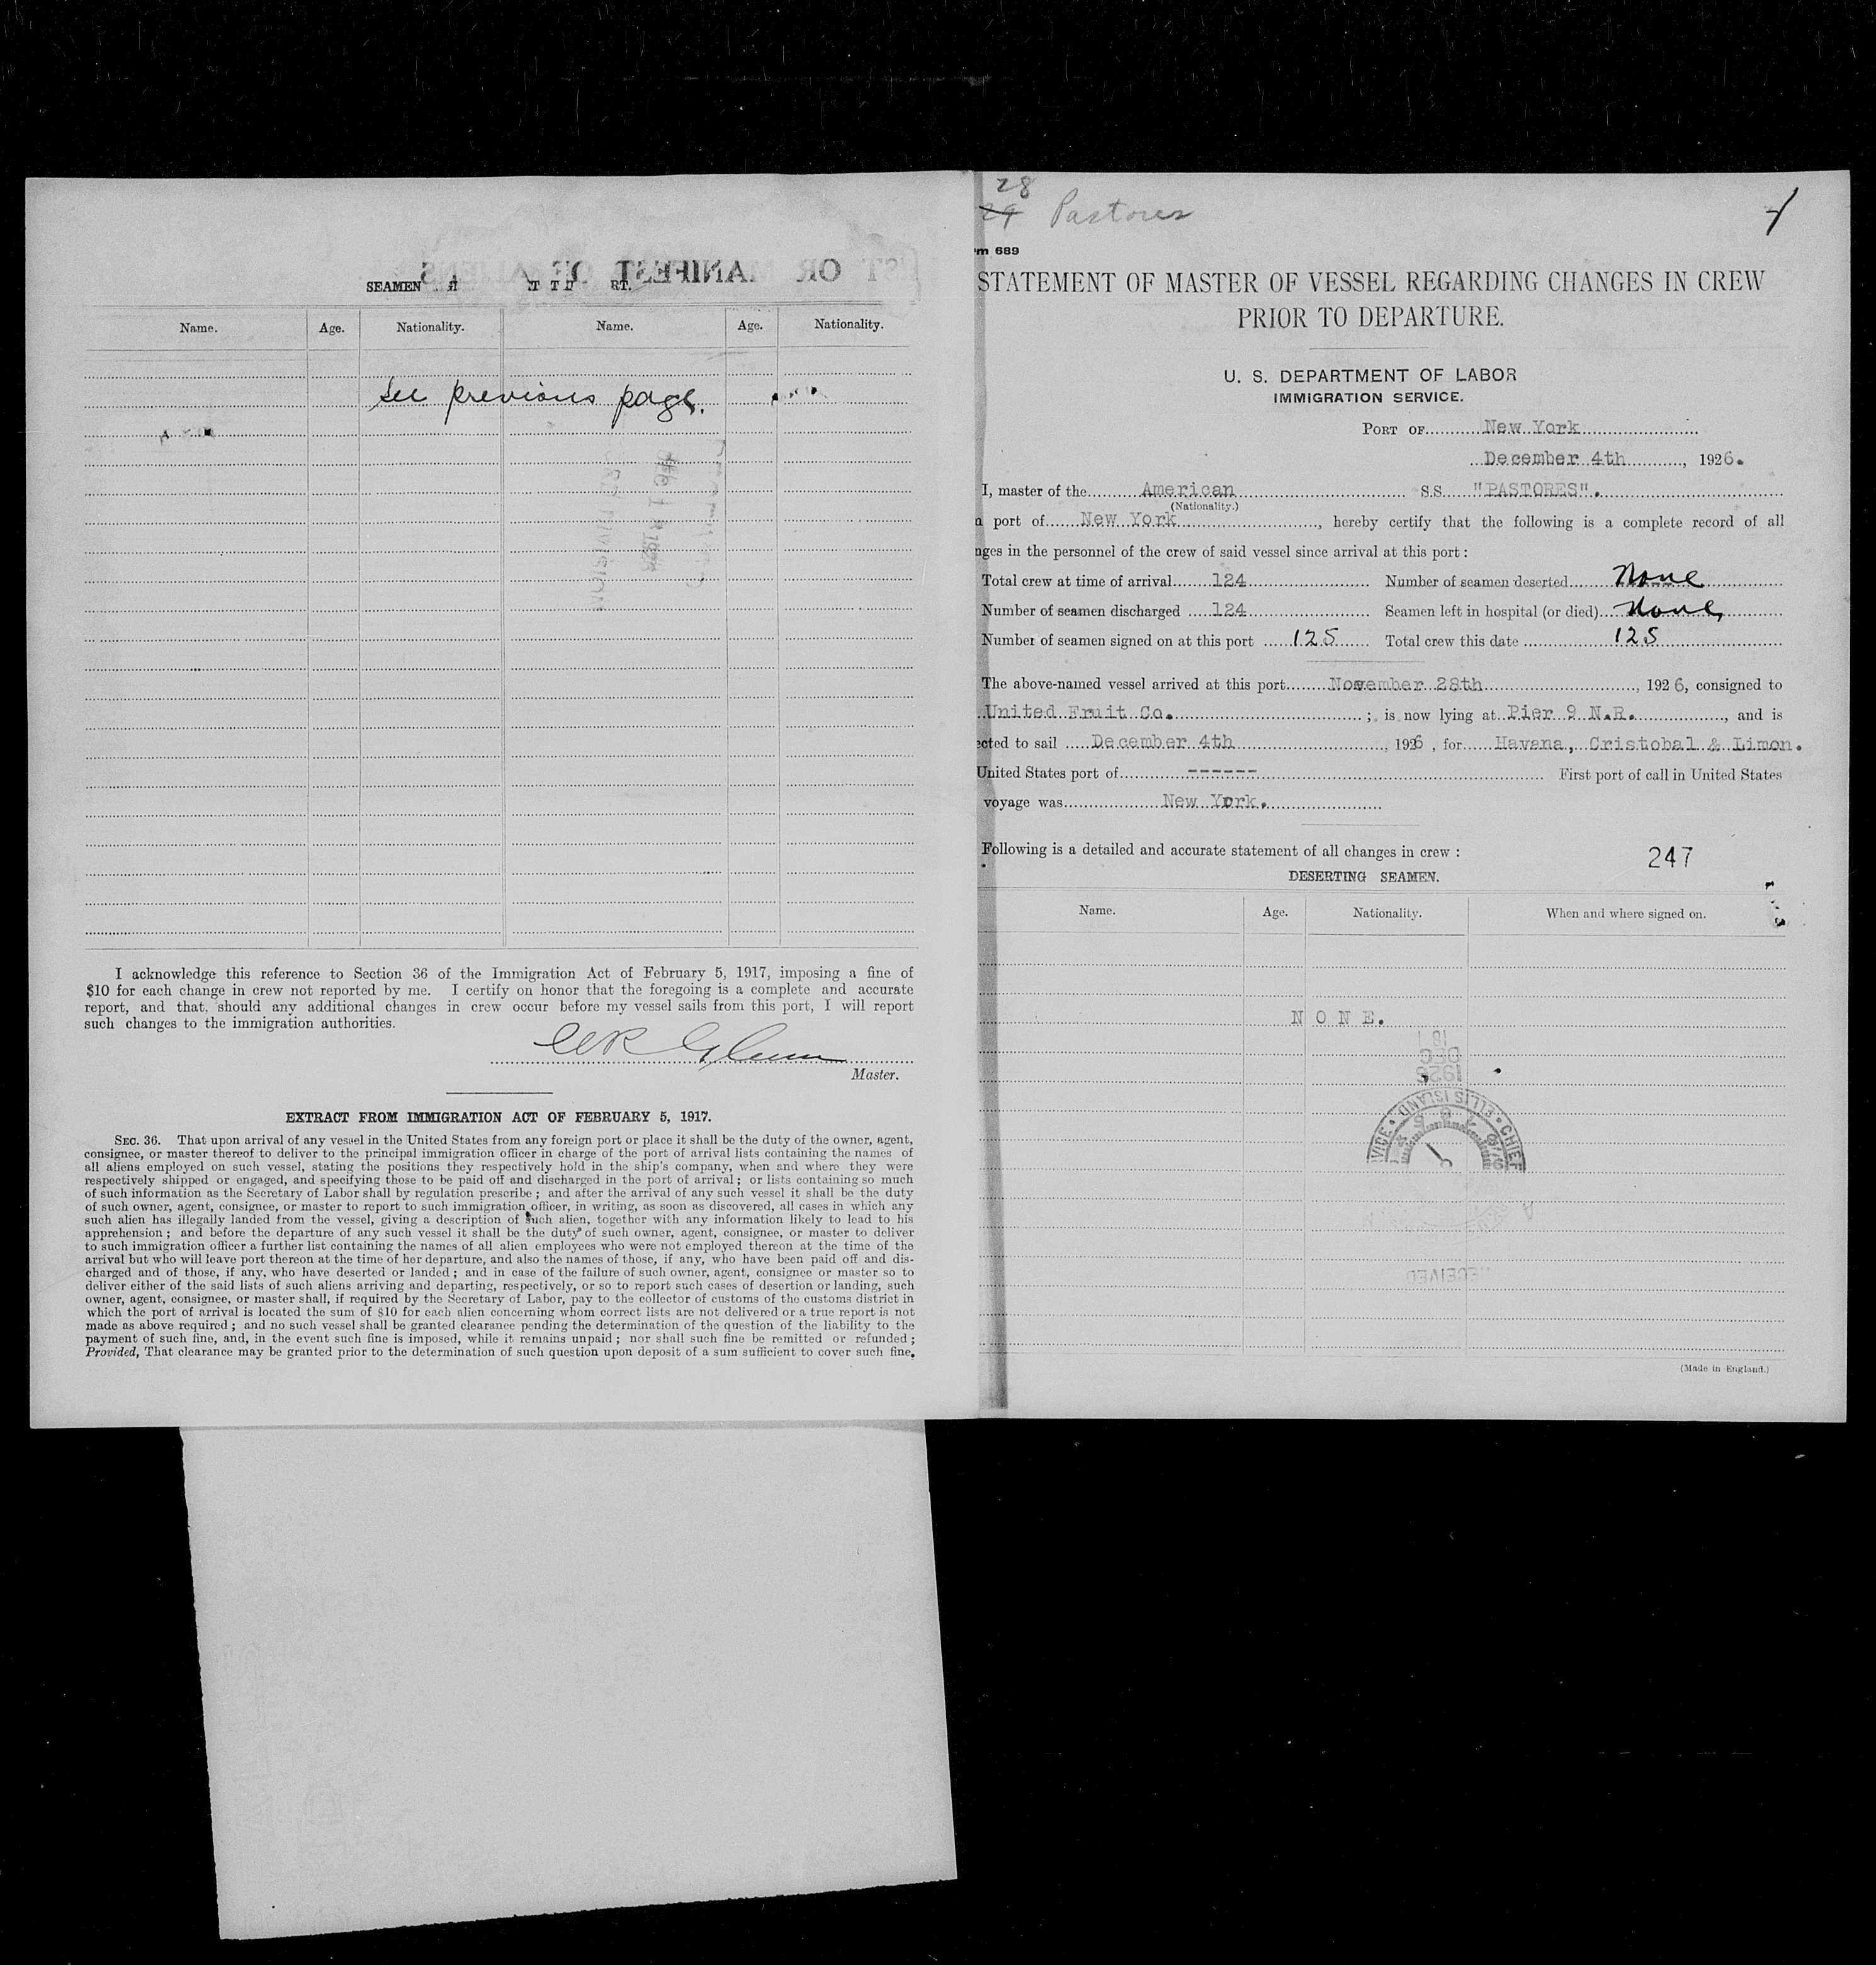 SEAMEN
Name. Age. Nationality. Name. Age. Nationality.
See previous page.
I acknowledge this reference to Section 36 of the Immigration Act of February 5, 1917, imposing a fine of
$10 for each change in crew not reported by me. I certify on honor that the foregoing is a complete and accurate
report, and that, should any additional changes in crew occur before my vessel sails from this port, I will report
such changes to the immigration authorities.
Master.
EXTRACT FROM IMMIGRATION ACT OF FEBRUARY 5, 1917.
SEC. 36. That upon arrival of any vessel in the United States from any foreign port or place it shall be the duty of the owner, agent,
consignee, or master thereof to deliver to the principal immigration officer in charge of the port of arrival lists containing the names of
all aliens employed on such vessel, stating the positions they respectively hold in the ship's company, when and where they were
respectively shipped or engaged, and specifying those to be paid off and discharged in the port of arrival; or lists containing so much
of such information as the Secretary of Labor shall by regulation prescribe; and after the arrival of any such vessel it shall be the duty
of such owner, agent, consignee, or master to report to such immigration officer, in writing, as soon as discovered, all cases in which any
such alien has illegally landed from the vessel, giving a description of such alien, together with any information likely to lead to his
apprehension; and before the departure of any such vessel it shall be the duty of such owner, agent, consignee, or master to deliver
to such immigration officer a further list containing the names of all alien employees who were not employed thereon at the time of the
arrival but who will leave port thereon at the time of her departure, and also the names of those, if any, who have been paid off and dis-
charged and of those, if any, who have deserted or landed; and in case of the failure of such owner, agent, consignee or master so to
deliver either of the said lists of such aliens arriving and departing, respectively, or so to report such cases of desertion or landing, such
owner, agent, consignee, or master shall, if required by the Secretary of Labor, pay to the collector of customs of the customs district in
which the port of arrival is located the sum of $10 for each alien concerning whom correct lists are not delivered or a true report is not
made as above required; and no such vessel shall be granted clearance pending the determination of the question of the liability to the
payment of such fine, and, in the event such fine is imposed, while it remains unpaid; nor shall such fine be remitted or refunded;
Provided, That clearance may be granted prior to the determination of such question upon deposit of a sum sufficient to cover such fine.
28
29 Pastores
m 689
STATEMENT OF MASTER OF VESSEL REGARDING CHANGES IN CREW
PRIOR TO DEPARTURE.
U. S. DEPARTMENT OF LABOR
IMMIGRATION SERVICE.
PORT OF New York
December 4th, 1926.
I, master of the American S.S. "PASTORES".
(Nationality.)
port of New York, hereby certify that the following is a complete record of all
ges in the personnel of the crew of said vessel since arrival at this port:
Total crew at time of arrival 124 Number of seamen deserted None
Number of seamen discharged 124 Seamen left in hospital (or died) None
Number of seamen signed on at this port 125 Total crew this date 125
The above-named vessel arrived at this port November 28th, 1926, consigned to
United Fruit Co.; is now lying at Pier 9 N.R., and is
cted to sail December 4th, 1926, for Havana, Cristobal & Limon.
United States port of ------ First port of call in United States
voyage was New York.
Following is a detailed and accurate statement of all changes in crew:
247
DESERTING SEAMEN.
Name. Age. Nationality. When and where signed on.
NONE.
DEC
1926
ELLIS ISLAND
CHIEF
RECEIVED
(Made in England.)